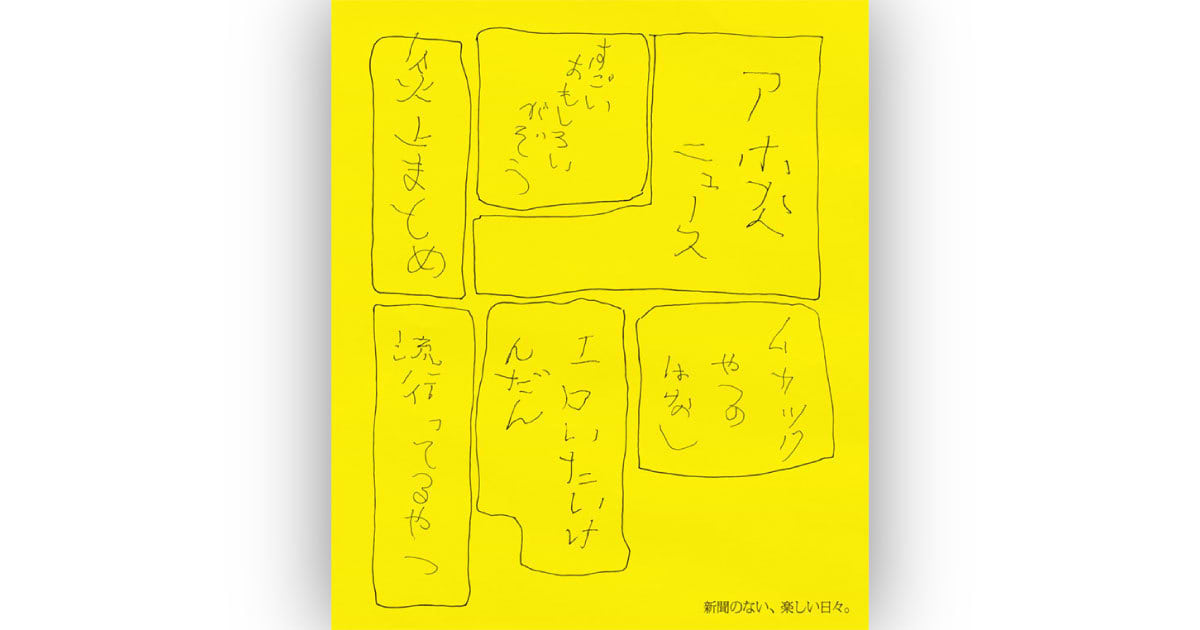 アホ
ニュース
すごい
おもしろい
がぞう
炎上まとめ
ムカツク
やつの
はなし
エロいたいけ
んだん
流行ってるやつ
新聞のない、楽しい日々。